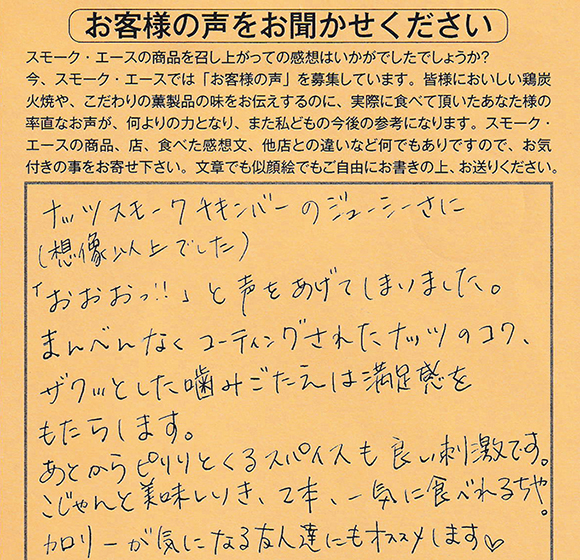 お客様の声をお聞かせください
スモーク・エースの商品を召し上がっての感想はいかがでしたでしょうか?
今、スモーク・エースでは「お客様の声」を募集しています。皆様においしい鶏炭
火焼や、こだわりの薫製品の味をお伝えするのに、実際に食べて頂いたあなた様の
率直なお声が、何よりの力となり、また私どもの今後の参考になります。スモーク・
エースの商品、店、食べた感想文、他店との違いなど何でもありですので、お気
付きの事をお寄せ下さい。文章でも似顔絵でもご自由にお書きの上、お送りください。
ナッツスモークチキンバーのジューシーさに
(想像以上でした)
「おおおっ!!」と声をあげてしまいました。
まんべんなくコーティングされたナッツのコク、
ザクッとした噛みごたえは満足感を
もたらします。
あとからピリリとくるスパイスも良い刺激です。
こじゃんと美味しいき、2本、一気に食べれるちや。
カロリーが気になる友人達にもオススメします♡